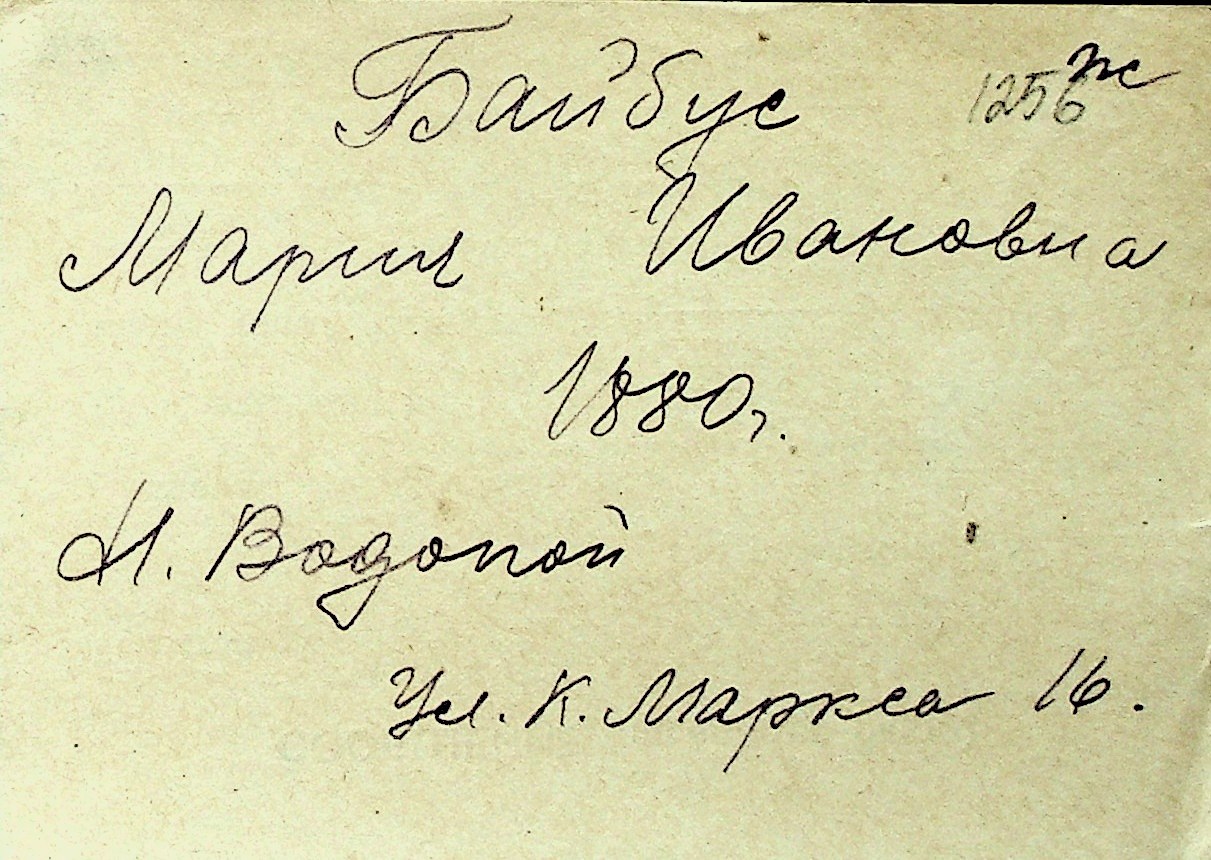 Байбус 1256 ж
Мария Ивановна
1880 г.
М. Водопой
Ул. К. Маркса 16.